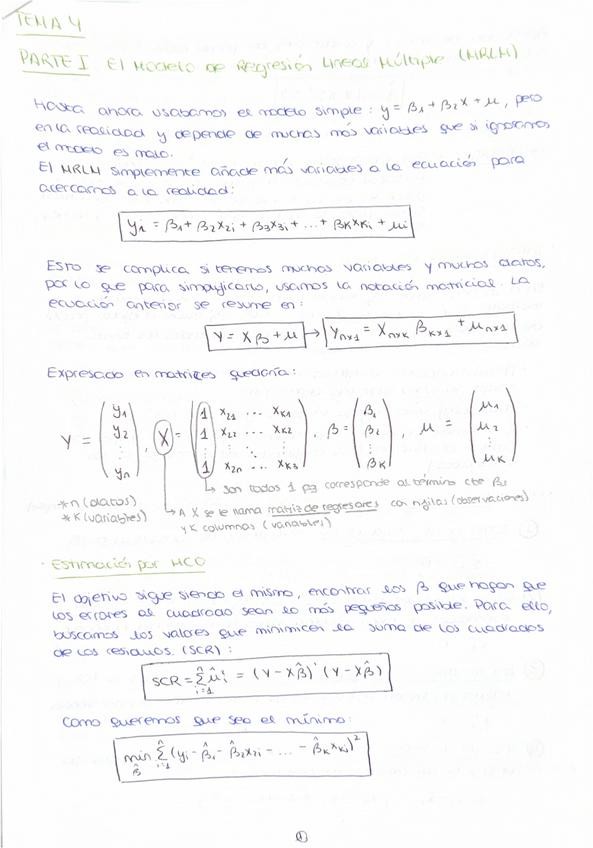 TEMA 4
PARTE I El Modelo de Regresión Lineal Múltiple (MRLM)
Hasta ahora usabamos el modelo simple: y = β1 + β2x + μ, pero
en la realidad y depende de muchas más variables que si ignoramos
el modelo es malo.
El MRLM simplemente añade más variables a la ecuación para
acercarnos a la realidad:
yi = β1 + β2x2i + β3x3i + ... + βkxki + μi
Esto se complica si tenemos muchas variables y muchos datos,
por lo que para simplificarlo, usamos la notación matricial. La
ecuación anterior se resume en:
Y = Xβ + μ → Ynx1 = Xnxk βkx1 + μnx1
Expresado en matrices quedaría:
Y = (y1 y2 ⋮ yn), X = (1 x21 ... xk1 1 x22 ... xk2 ⋮ ⋮ ⋱ ⋮ 1 x2n ... xk3), β = (β1 β2 ⋮ βk), μ = (μ1 μ2 ⋮ μk)
↳ son todos 1 pq corresponde al término cte β1
*n (datos)
*K (variables)
→ A X se le llama matriz de regresores con n filas (observaciones)
y K columnas (variables)
· Estimación por MCO
El objetivo sigue siendo el mismo, encontrar los β que hagan que
los errores al cuadrado sean lo más pequeños posible. Para ello,
buscamos los valores que minimicen la suma de los cuadrados
de los residuos. (SCR):
SCR = Σ(i=1, n) μ̂i = (Y - Xβ̂)' (Y - Xβ̂)
Como queremos que sea el mínimo:
min β̂ Σ(i=1, n) (yi - β̂1 - β̂2x2i - ... - β̂kxki)²
1